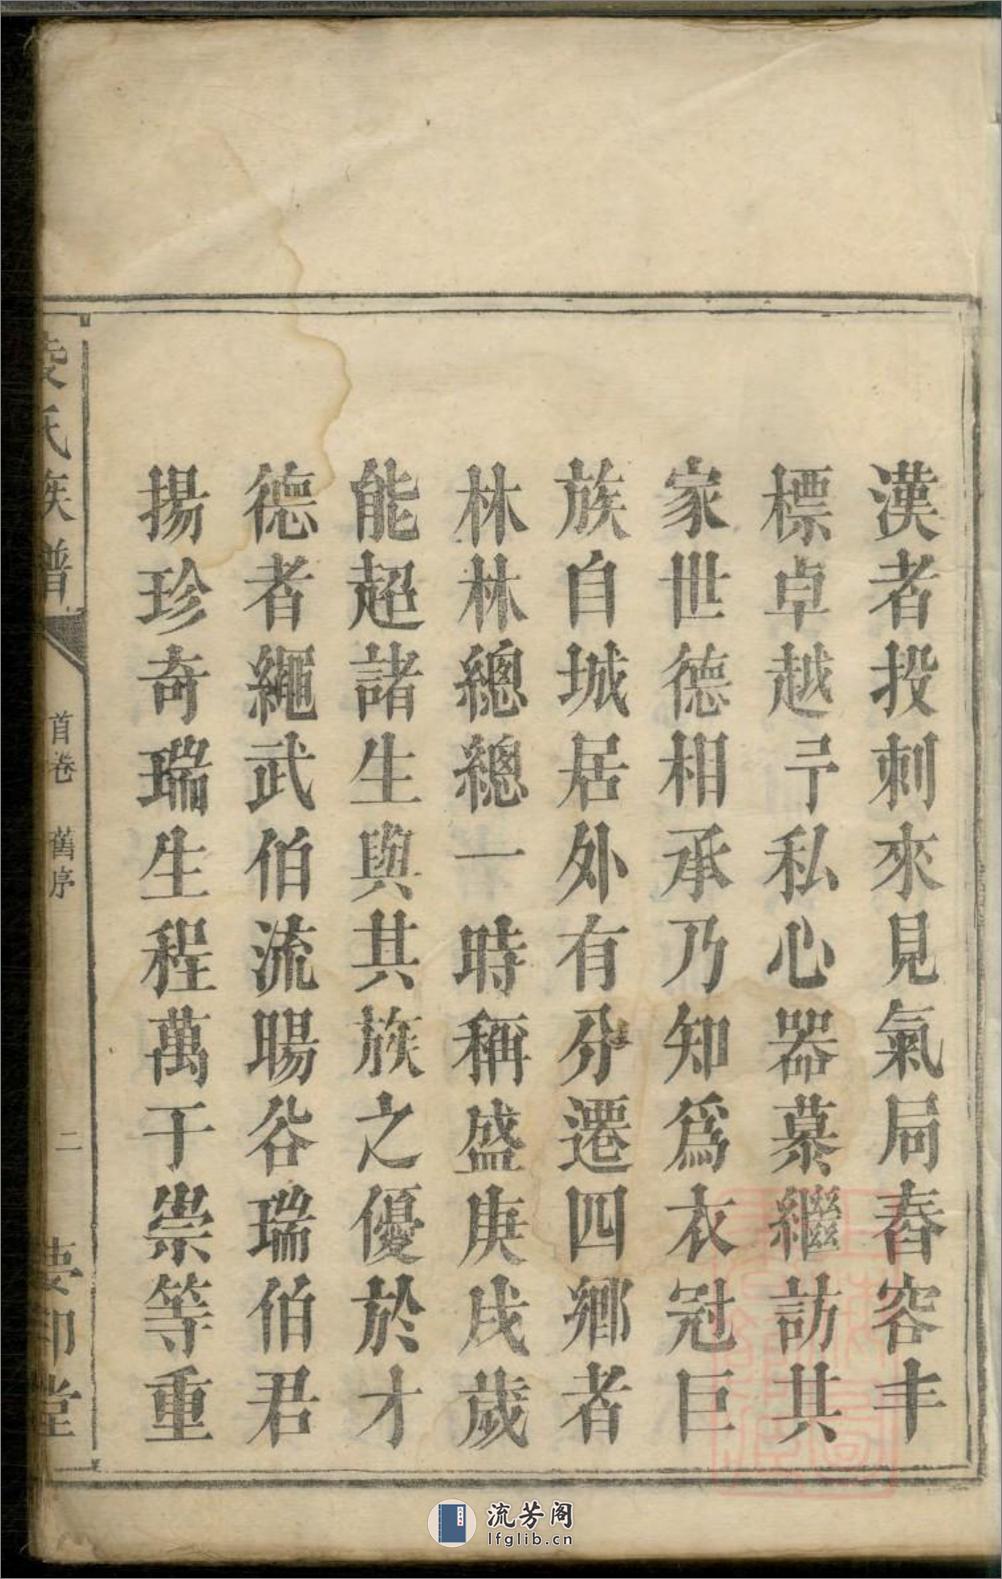 漢者投刺來見氣局春容丰
標卓越予私心器慕繼訪其
家世德相承乃知爲衣冠巨
族自城居外有分遷四鄉者
林林總總一時稱盛庚戌歲
能超諸生與其族之優於才
德者繩武伯流暘谷瑞伯君
揚珍奇瑞生程萬于崇等重
氏族譜
首卷 舊序
二
堂
流芳阁
lfglib.cn